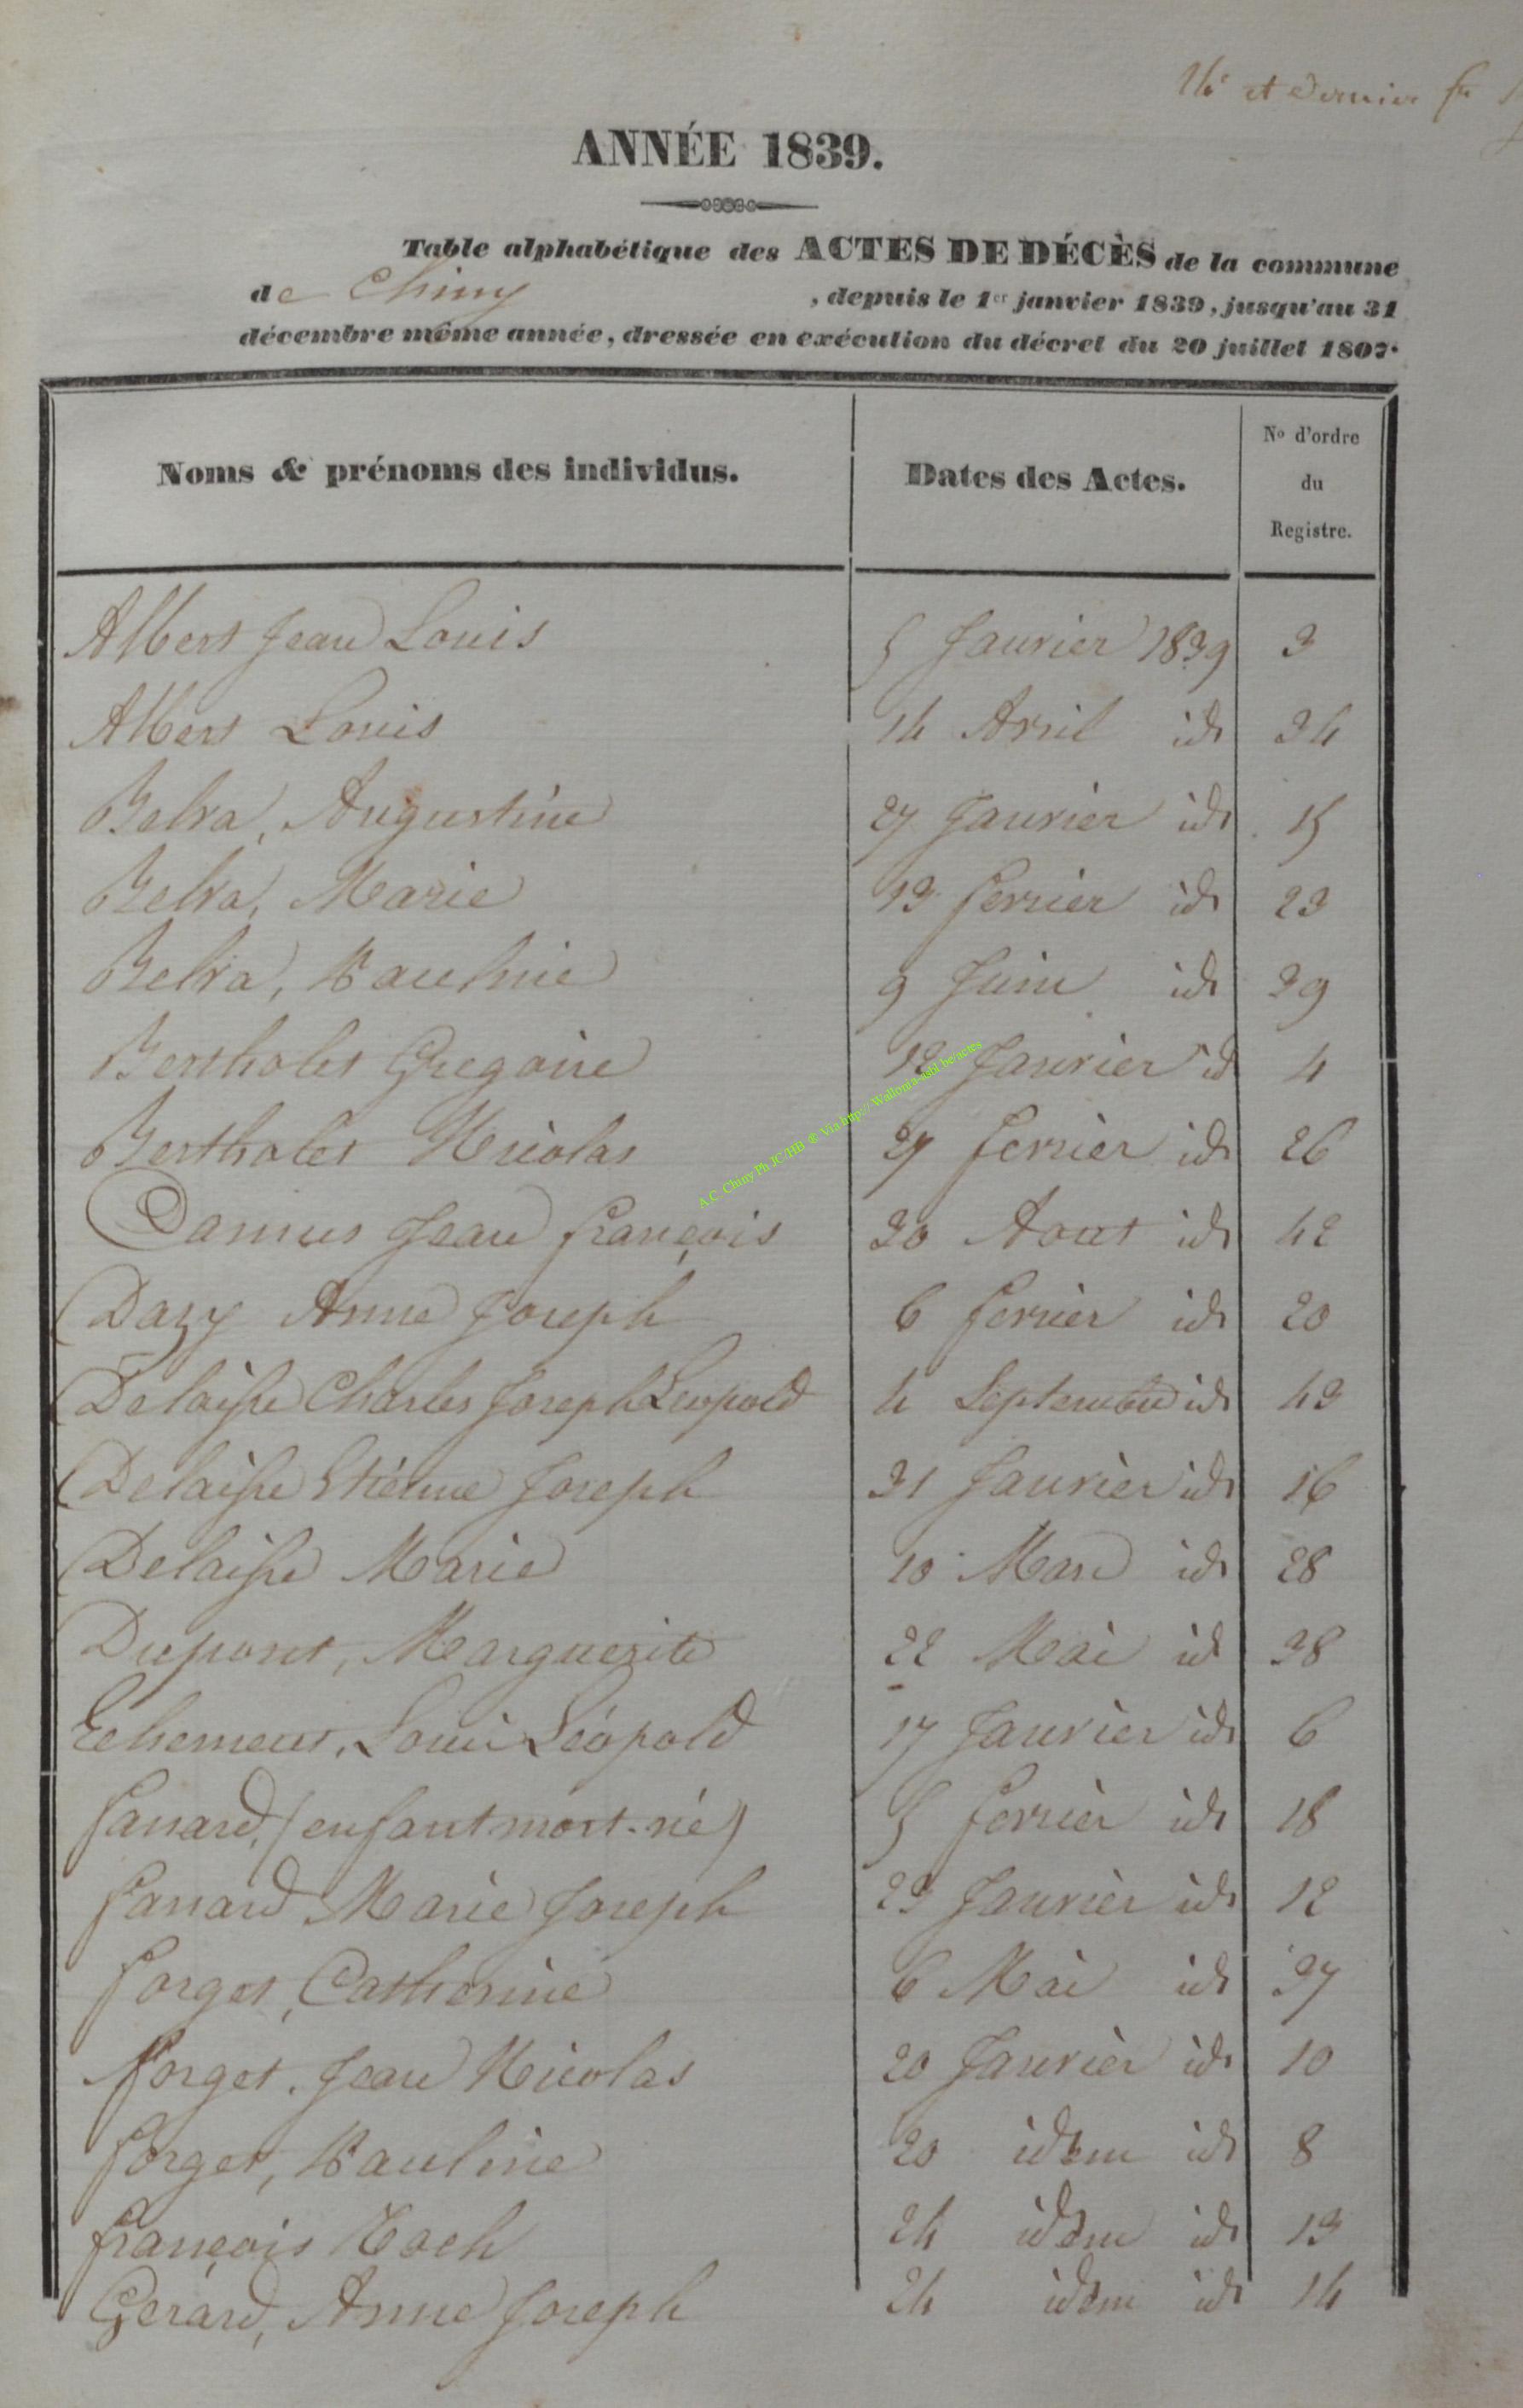 14e et dernier
ANNÉE 1839.
Table alphabétique des ACTES DE DÉCÈS de la commune
de Chiny , depuis le 1er janvier 1839, jusqu'au 31
décembre même année, dressée en exécution du décret du 20 juillet 1807.
Noms & prénoms des individus. Dates des Actes. No d'ordre du Registre.
Albert Jean Louis 5 Janvier 1839 3
Albert Louis 14 Avril id 34
Belva, Augustine 27 Janvier id 15
Belva, Marie 13 fevrier id 23
Belva, Pauline 9 Juin id 39
Bertholet Gregoire 12 Janvier id 4
Bertholet Nicolas 27 fevrier id 26
Camus Jean françois 30 Aout id 42
Dazy Anne Joseph 6 fevrier id 20
Delaisse Charles Joseph Leopold 4 Septembre id 43
Delaisse Etienne Joseph 31 Janvier id 16
Delaisse Marie 10 Mars id 28
Dupont, Marguerite 22 Mai id 38
Echement, Louis Léopold 17 Janvier id 6
fanard, (enfant mort-né) 5 fevrier id 18
fanard Marie Joseph 23 Janvier id 12
forget, Catherine 6 Mai id 37
forget, Jean Nicolas 20 Janvier id 10
forget, Pauline 20 idem id 8
françois Roch 24 idem id 13
Gerard, Anne Joseph 24 idem id 14
A.C. Chiny Ph JC HB ® Via http://Wallonia-asbl.be/actes